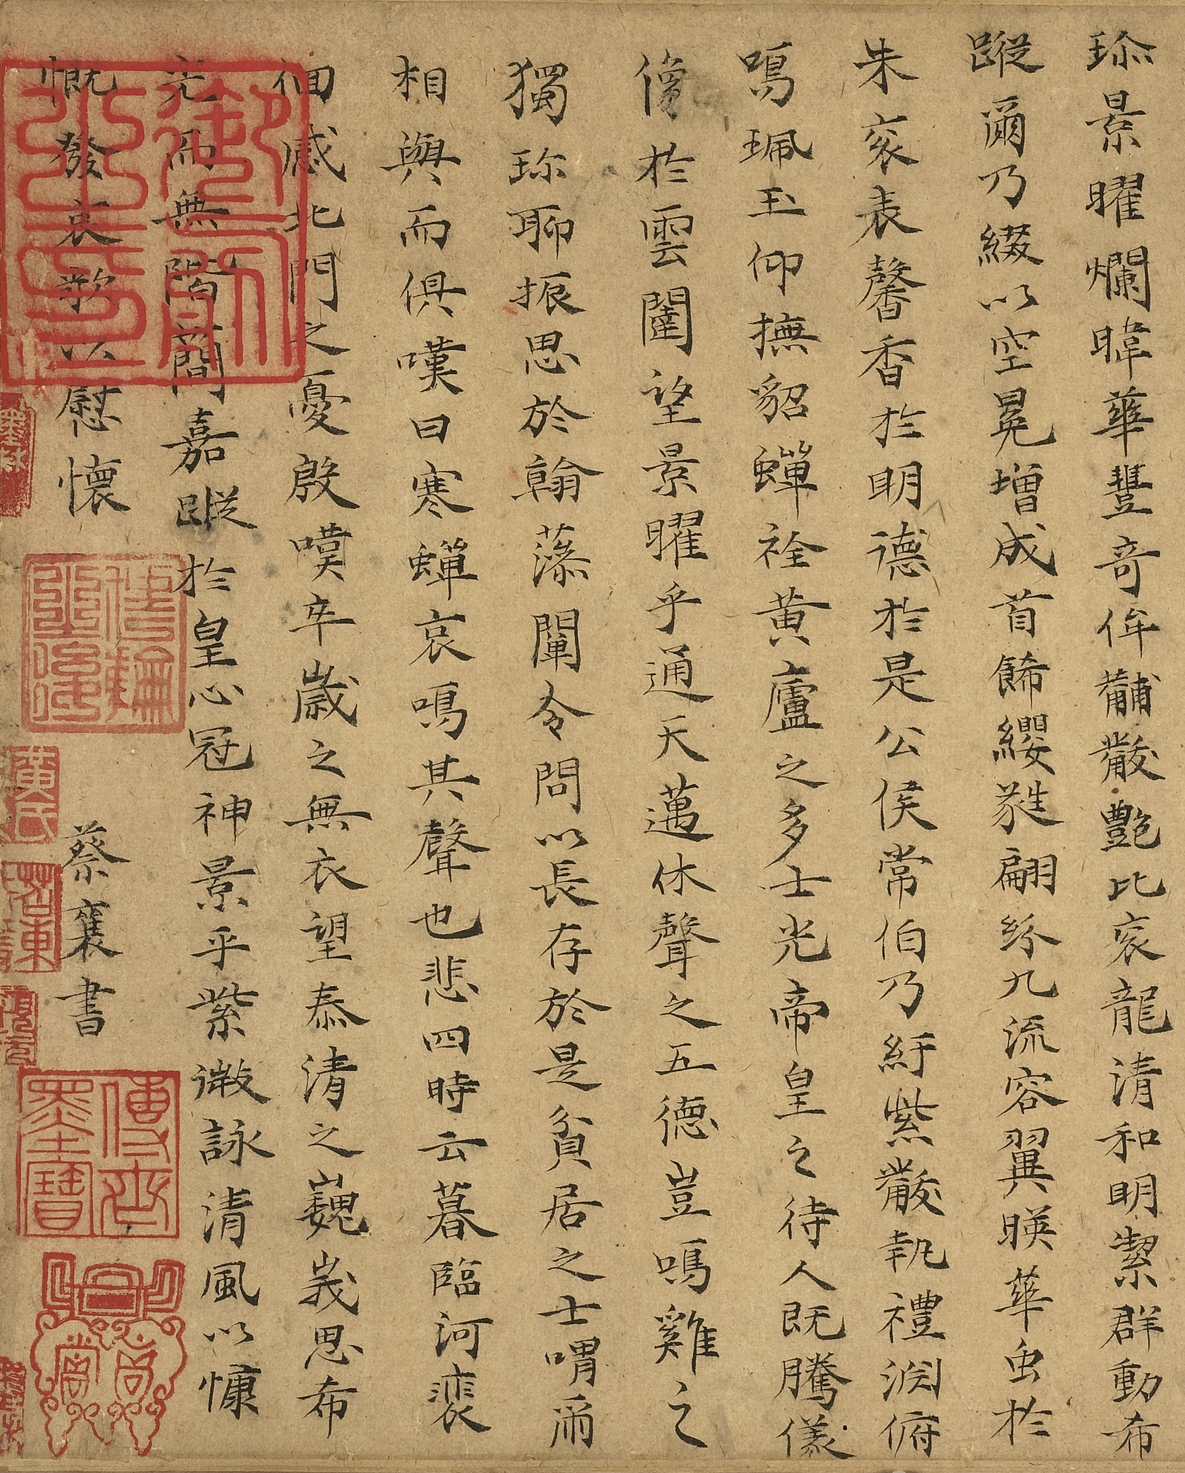 珎景曜爛暐華豐奇侔黼黻艷比袞龍清和明潔群動希
蹤爾乃綴以空冕增成首飾纓蕤翩紛九流容翼暎華虫於
朱袞表馨香於明德於是公侯常伯乃紆紫黻執禮淵俯
鳴珮玉仰撫貂蟬黄廬之多士光帝皇之待人既騰儀
像於雲闈望景曜乎通天邁休聲之五德豈鳴雞之
獨珎聊振思於翰藻闡令問以長存於是貧居之士喟爾
相與而俱嘆曰寒蟬哀鳴其聲也悲四時云暮臨河裴
徊感北門之憂殷嘆卒歲之無衣望泰清之巍峩思希
光而無階簡嘉蹤於皇心冠神景乎紫微詠清風以慷
慨發哀歌以慰懷
蔡襄書
黃氏
傳世墨寶